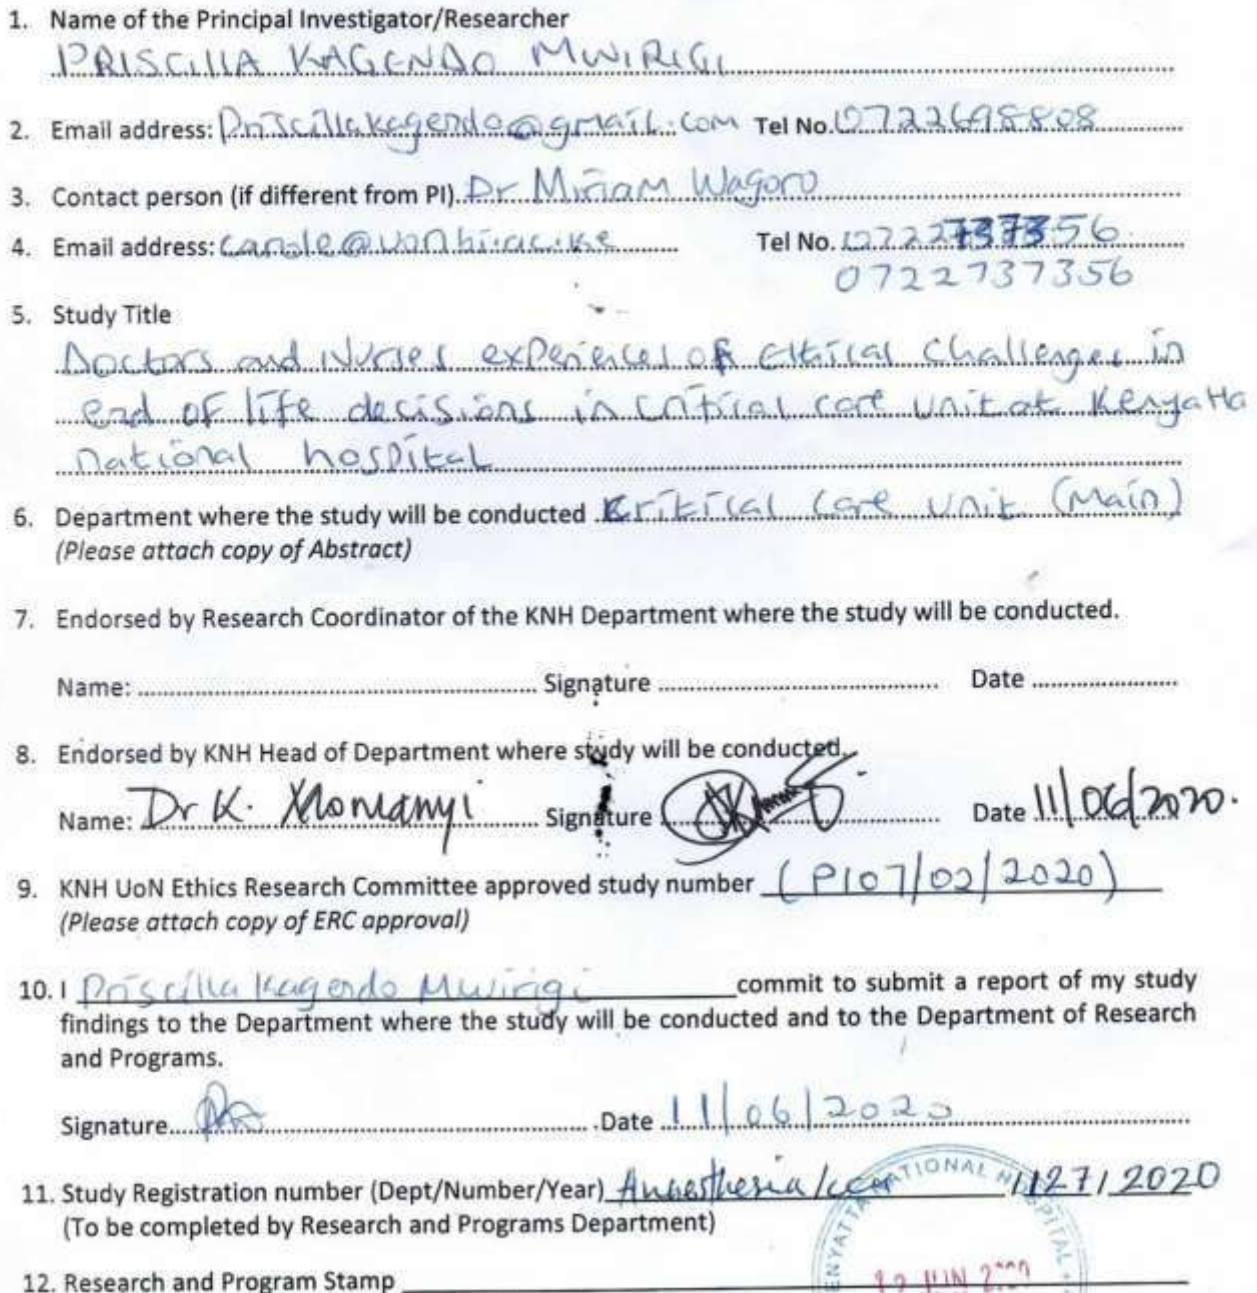 1. Name of the Principal Investigator/Researcher
PRISCILLA KAGENDO MWIRIGI
2. Email address: Priscillakagendo@gmail.com Tel No. 0722698808
3. Contact person (if different from PI). Dr Miriam Wagoro
4. Email address: carole@uonbi.ac.ke Tel No. 0722737356
0722737356
5. Study Title
Doctors and Nurses experiences of ethical challenges in
end of life decisions in critical care unit at Kenyatta
national hospital
6. Department where the study will be conducted Critical Care Unit (Main)
(Please attach copy of Abstract)
7. Endorsed by Research Coordinator of the KNH Department where the study will be conducted.
Name: Signature Date
8. Endorsed by KNH Head of Department where study will be conducted.
Name: Dr K. Signature Date 11/06/2020.
9. KNH UoN Ethics Research Committee approved study number (P107/02/2020)
(Please attach copy of ERC approval)
10. I Priscilla Kagendo Mwirigi commit to submit a report of my study
findings to the Department where the study will be conducted and to the Department of Research
and Programs.
Signature Date 11/06/2020
11. Study Registration number (Dept/Number/Year) Anaesthesia/ccu /127/2020
(To be completed by Research and Programs Department)
12. Research and Program Stamp
KENYATTA NATIONAL HOSPITAL
12 JUN 2020